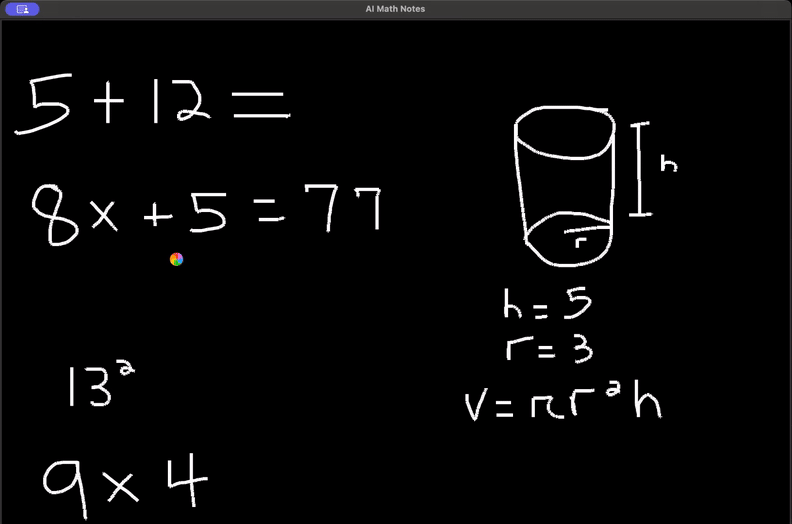 AI Math Notes
5 + 12 =
8x + 5 = 77
13²
9 x 4
h
r
h = 5
r = 3
V = πr²h